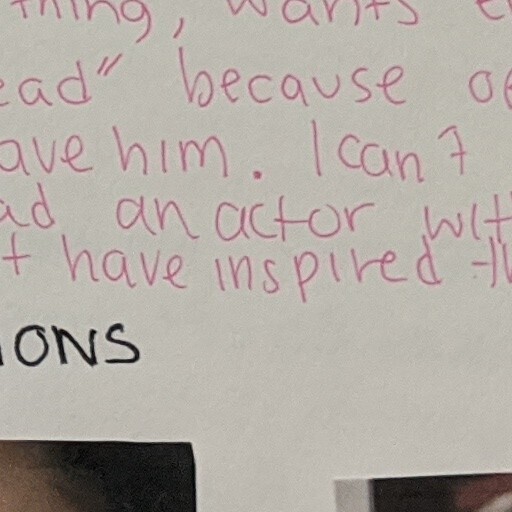 thing, wants
ead" because of
ave him. I can't
ad an actor with
t have inspired th
IONS